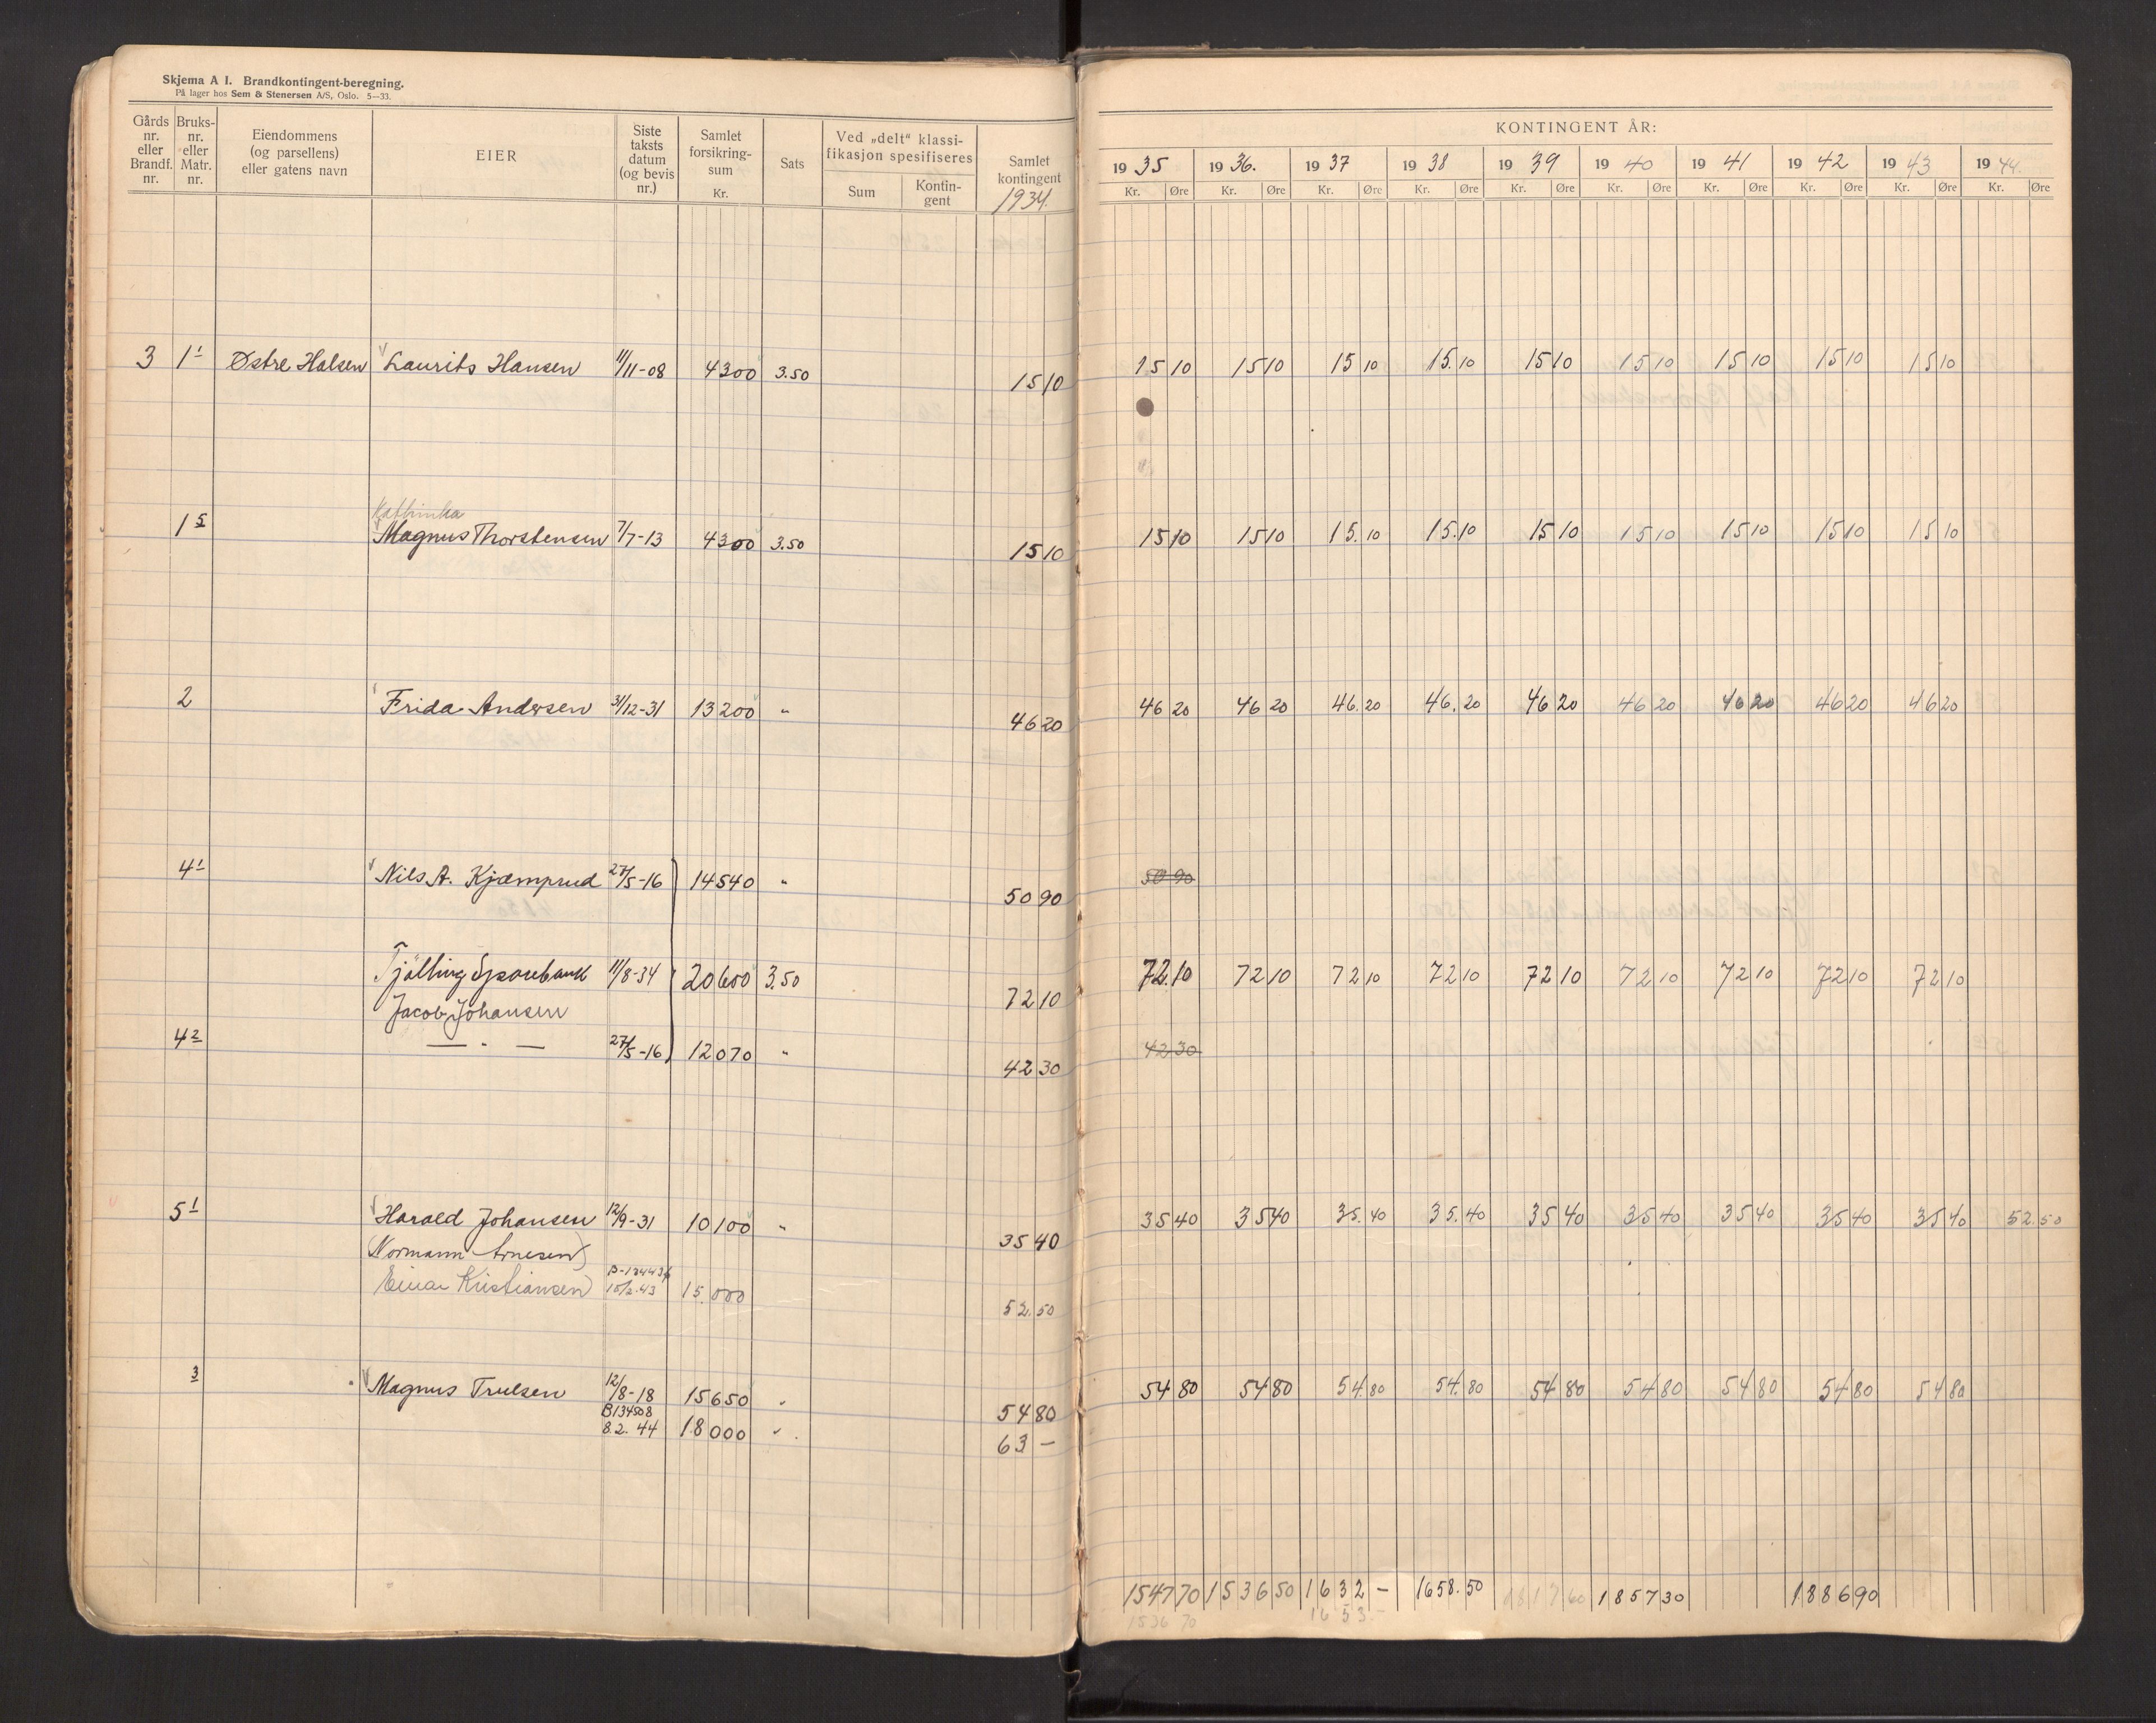 Skjema A I. Brandkontingent-beregning.
På lager hos Sem & Stenersen A/S, Oslo. 5—33.
Gårds nr. eller Brandf. nr. | Bruks- nr. eller Matr. nr. | Eiendommens (og parsellens) eller gatens navn | EIER | Siste taksts datum (og bevis nr.) | Samlet forsikring- sum Kr. | Sats | Ved „delt" klassi- fikasjon spesifiseres Sum | Kontin- gent | Samlet kontingent 1934.
KONTINGENT ÅR:
1935 | 1936. | 1937 | 1938 | 1939 | 1940 | 1941 | 1942 | 1943 | 1944.
Kr. Øre | Kr. Øre | Kr. Øre | Kr. Øre | Kr. Øre | Kr. Øre | Kr. Øre | Kr. Øre | Kr. Øre | Kr. Øre
3 | 1¹ | Østre Halsen | Laurits Hansen | 11/11-08 | 4300 | 3.50 | 15 10 | 15 10 | 15 10 | 15 10 | 15.10 | 15 10 | 15 10 | 15 10 | 15 10 | 15 10
Kathinka
1⁵ | Magnus Thorstensen | 7/7-13 | 4300 | 3.50 | 15 10 | 15 10 | 15 10 | 15.10 | 15.10 | 15 10 | 15 10 | 15 10 | 15 10 | 15 10
2 | Frida Andersen | 31/12-31 | 13200 | " | 46 20 | 46 20 | 46 20 | 46.20 | 46.20 | 46 20 | 46 20 | 46 20 | 46 20 | 46 20
4¹ | Nils A. Kjæmprud | 27/5-16 | 14540 | " | 50 90 | 50 90
Tjølling Sparebank | 11/8-34 | 20600 | 3.50 | 72 10 | 72.10 | 72 10 | 72 10 | 72 10 | 72 10 | 72 10 | 72 10 | 72 10 | 72 10
Jacob Johansen
4² | — " — | 27/5-16 | 12070 | " | 42 30 | 42 30
5¹ | Harald Johansen | 12/9-31 | 10100 | " | 35 40 | 35 40 | 35 40 | 35.40 | 35.40 | 35 40 | 35 40 | 35 40 | 35 40 | 35 40 | 52.50
(Normann Arnesen)
Einar Kristiansen) | 15.000 | 52.50
3 | Magnus Trulsen | 12/8-18 | 15650 | " | 54 80 | 54 80 | 54 80 | 54.80 | 54.80 | 54 80 | 54 80 | 54 80 | 54 80 | 54 80
B134508
8.2.44 | 18000 | " | 63 —
1547 70 | 1536 50 | 1632 — | 1658.50 | 1817 60 | 1857 30 | 1886 90
1536 70 | 1653.-